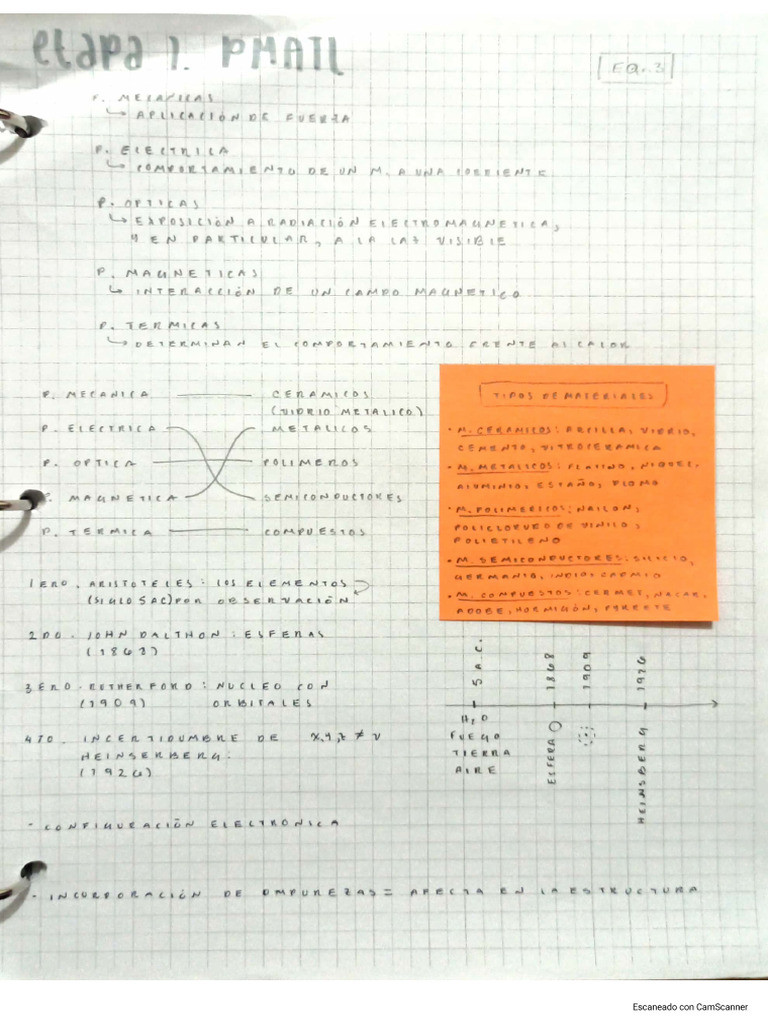 etapa 1. PMATL
EQ. 3
P. MECANICAS
APLICACIÓN DE FUERZA
P. ELECTRICA
COMPORTAMIENTO DE UN M. A UNA CORRIENTE
P. OPTICAS
EXPOSICIÓN A RADIACIÓN ELECTROMAGNETICA,
Y EN PARTICULAR, A LA LAZ VISIBLE
P. MAGNETICAS
INTERACCIÓN DE UN CAMPO MAGNETICO
P. TERMICAS
DETERMINAN EL COMPORTAMIENTO FRENTE AL CALOR
P. MECANICA
CERAMICOS
(VIDRIO METALICO)
P. ELECTRICA
METALICOS
P. OPTICA
POLIMEROS
P. MAGNETICA
SEMICONDUCTORES
P. TERMICA
COMPUESTOS
TIPOS DE MATERIALES
• M. CERAMICOS: ARCILLA, VIDRIO,
CEMENTO, VITROCERAMICA
• M. METALICOS: PLATINO, NIQUEL,
ALUMINIO, ESTAÑO, PLOMO
• M. POLIMERICOS: NAILON,
POLICLORUEO DE VINILO,
POLIETILENO
• M. SEMICONDUCTORES: SILICIO,
GERMANIO, INDIO, CADMIO
• M. COMPUESTOS: CERMET, NACAR,
ADOBE, HORMIGÓN, FERRETE
1ERO. ARISTOTELES: LOS ELEMENTOS
(SIGLO 5 AC) POR OBSERVACIÓN
2DO. JOHN DALTHON: ESFERAS
(1868)
3ERO. RETHERFORD: NUCLEO CON
(1909) ORBITALES
4TO. INCERTIDUMBRE DE X,Y,Z ≠ V
HEINSERBERG:
(1926)
5 a.C.
1868
1909
1926
H2O
FUEGO
TIERRA
AIRE
ESFERA
HEINSBERG
- CONFIGURACIÓN ELECTRONICA
- INCORPORACIÓN DE OMPUREZAS = AFECTA EN LA ESTRUCTURA
Escaneado con CamScanner